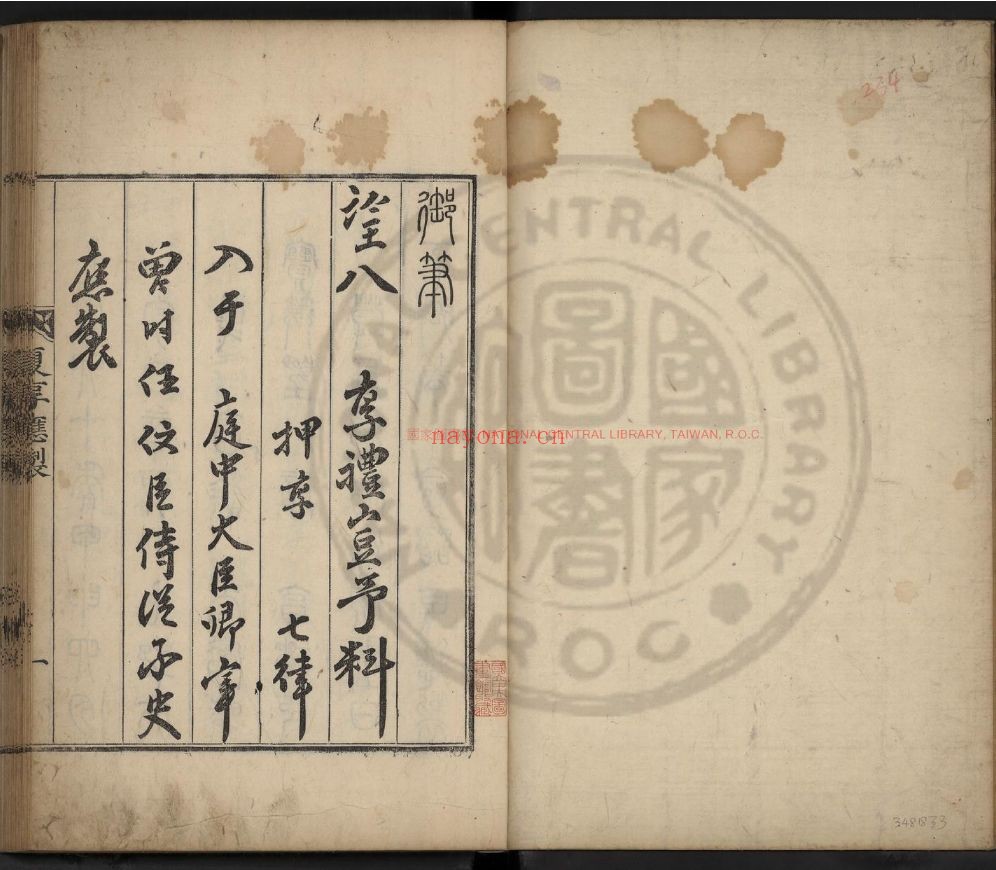 御筆
望八 享禮豈予料
押享 七律
入于 庭中大臣卿宰
曾時任 臣侍從承史
應製
夏享應製
一
234
348833
國家圖書館
NATIONAL CENTRAL LIBRARY, TAIWAN, R.O.C.
nayona.cn
CENTRAL LIBRARY
ROC
國家圖書